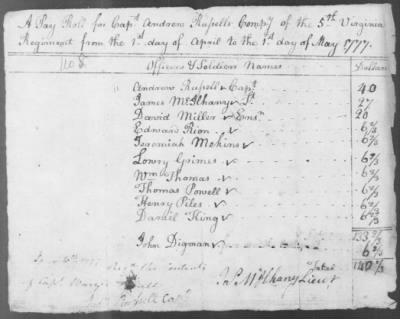 A Pay Roll for Capt. Andrew Russells Compy of the 5th Virginia
Regiment from the 1st day of April to the 1st day of May 1777.
No. Officers & Soldiers Names Dollars
Andrew Russell Capt. 40
James McIlhany Lt. 27
David Miller Ensn. 20
Edward Rion 6 2/3
Jeremiah Mekins 6 2/3
Lowry Grimes 6 2/3
Wm Thomas 6 2/3
Thomas Powell 6 2/3
Henry Piles 6 2/3
Daniel King 6 2/3
133 2/3
John Digman 6 2/3
140 1/3
the Contents
Jas. McIlhany Lieut
Capt.